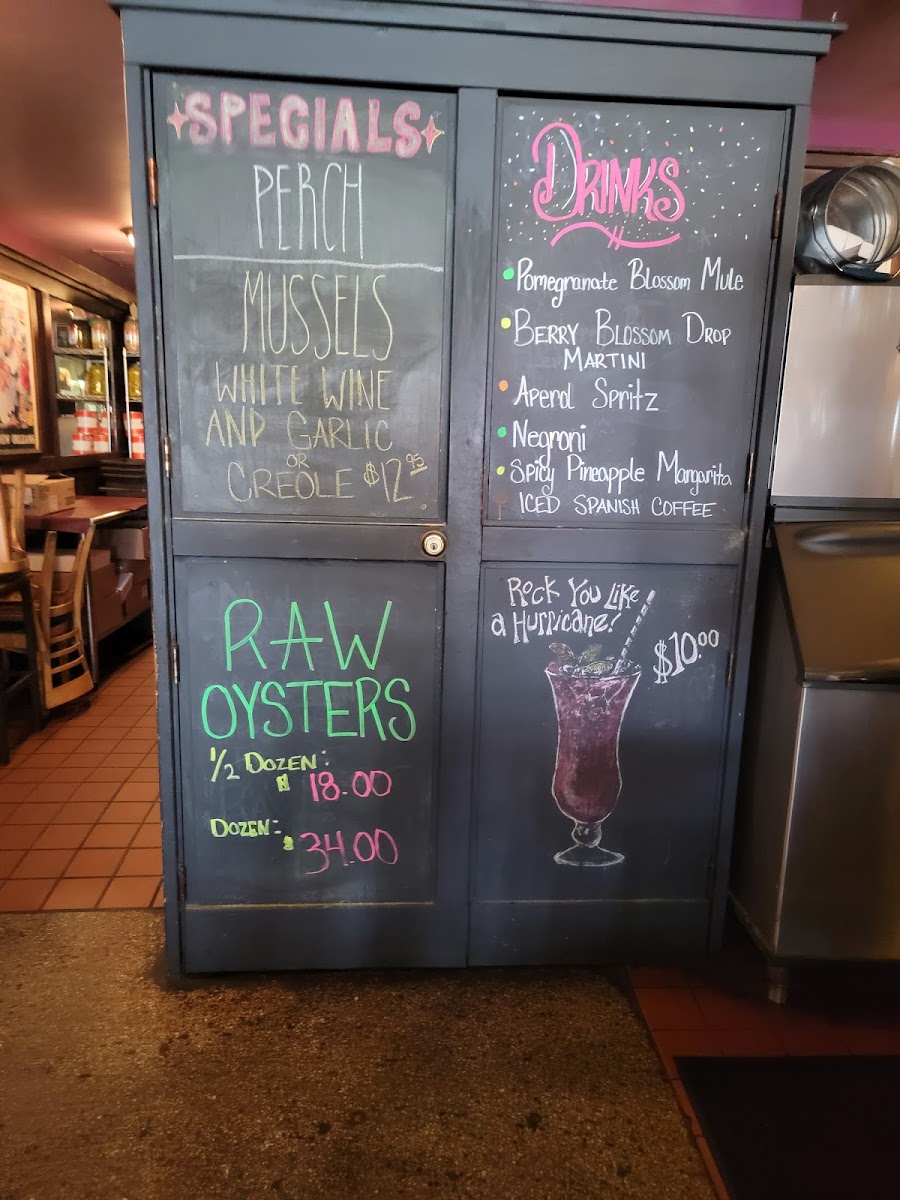 SPECIALS
PERCH
MUSSELS
WHITE WINE
AND GARLIC
OR
CREOLE $12.95
RAW
OYSTERS
1/2 DOZEN:
$ 18.00
DOZEN:
$ 34.00
DRINKS
Pomegranate Blossom Mule
BERRY BLOSSOM DROP
MARTINI
Aperol Spritz
Negroni
Spicy Pineapple Margarita
ICED SPANISH COFFEE
Rock You Like
a Hurricane!
$10.00